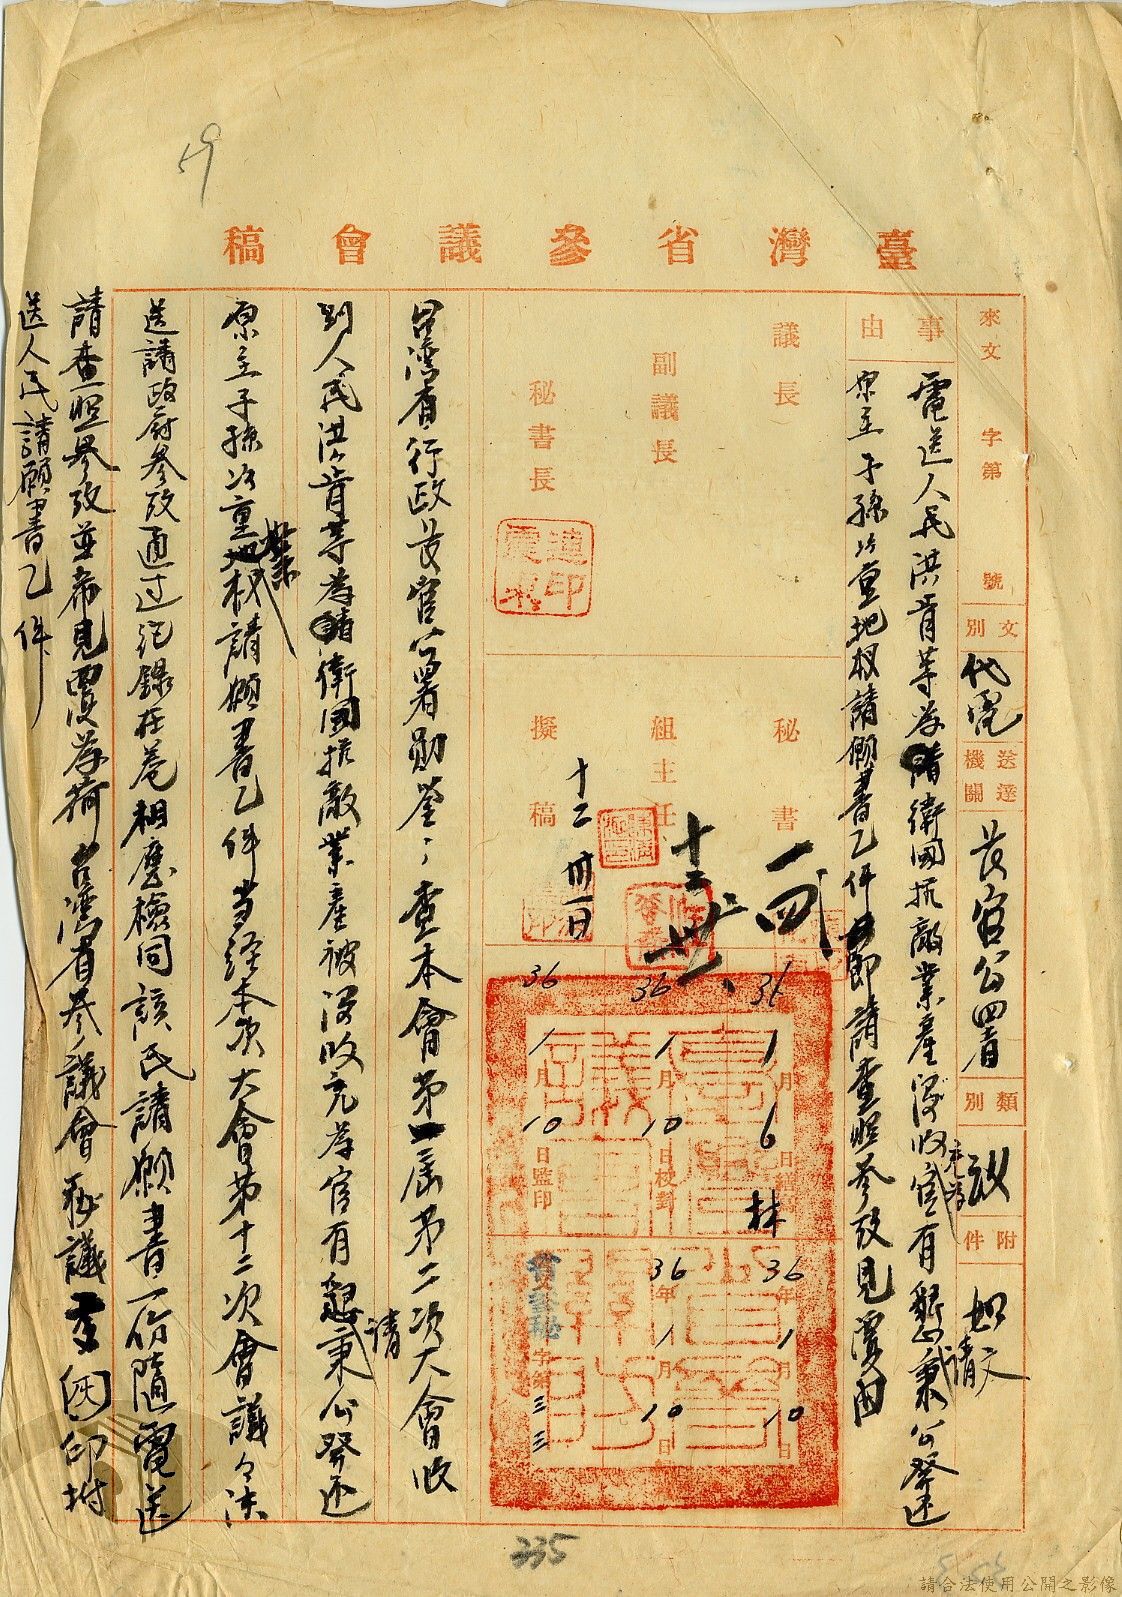 59
臺灣省參議會稿
來文 字第 號
文別 代電
送達機關 長官公署
類別 政
附件 如文
事由
電送人民洪肯等為請衛國抗敵業產沒收充為官有懇請秉公發還
原主子孫以重地权請願書乙件即請查照參攷見覆由
議長
副議長
秘書長
連震東印
秘書
組主任
擬稿
十二 卅一
十二 卅一日
36年1月6日繕寫 林
36年1月10日校對
36年1月10日監印
36年1月10日
36年1月10日
參秘字第三三
台灣省行政長官公署勛鑒：查本會第一屆第二次大會收
到人民洪肯等為請衛國抗敵業產被沒收充為官有懇請秉公發還
原主子孫以重業权請願書乙件當經本次大會第十二次會議決
送請政府參攷通过紀錄在卷相應檢同該民請願書一份隨電送
請查照參攷並希見覆為荷 台灣省參議會 秘議 子（灰）印 附
送人民請願書乙件
335
請合法使用公開之影像